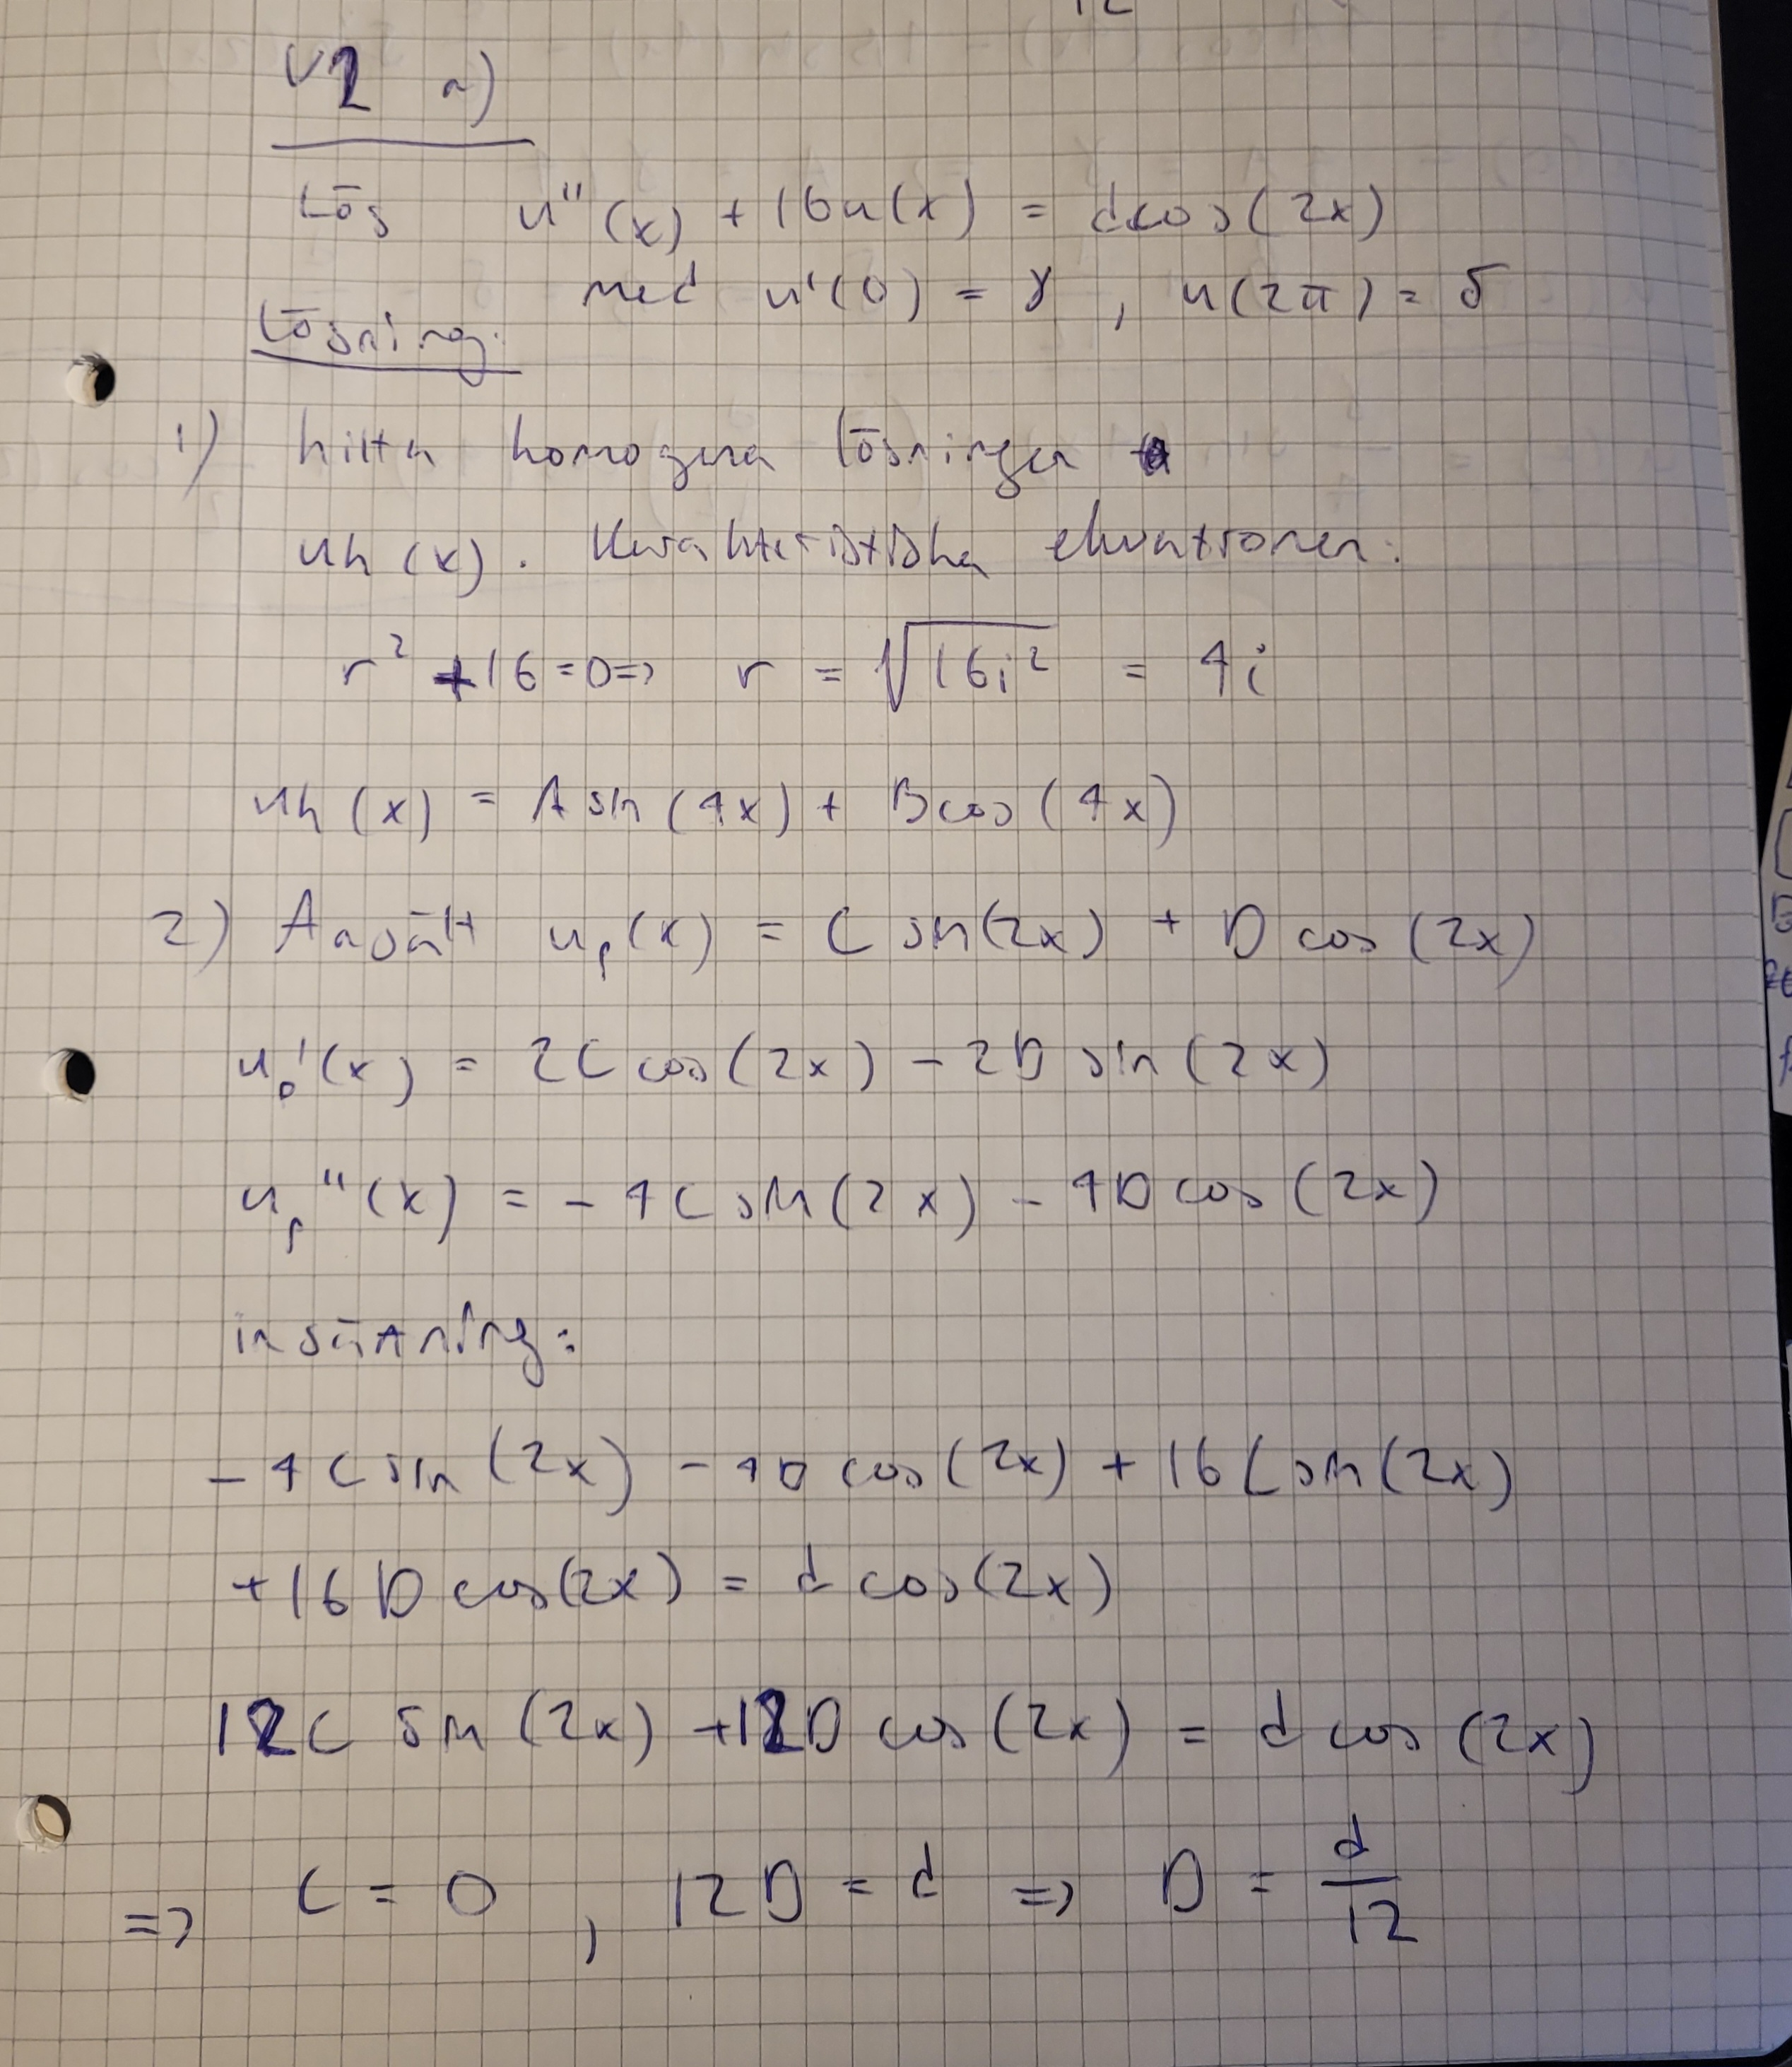 V2 a)
Lös u''(x) + 16u(x) = dcos(2x)
med u'(0) = γ, u(2π) = δ
Lösning:
1) hitta homogena lösningen
uh(x). Karakteristiska ekvationen:
r² + 16 = 0 => r = √16i² = 4i
uh(x) = A sin(4x) + B cos(4x)
2) Ansätt up(x) = C sin(2x) + D cos(2x)
up'(x) = 2C cos(2x) - 2D sin(2x)
up''(x) = -4C sin(2x) - 4D cos(2x)
insättning:
-4C sin(2x) - 4D cos(2x) + 16C sin(2x)
+16D cos(2x) = d cos(2x)
12C sin(2x) + 12D cos(2x) = d cos(2x)
=> C = 0, 12D = d => D = d/12